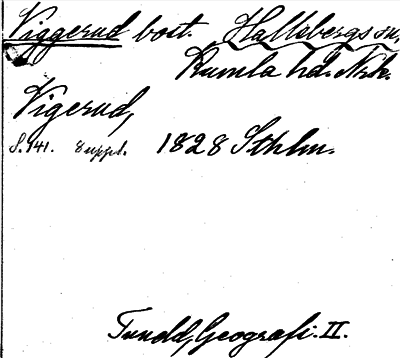 Viggerud bost. Hallsbergs sn,
Kumla hd. Nrk.
Vigerud,
S. 141. 8 uppl. 1828 Sthlm.
Tuneld, Geografi. II.